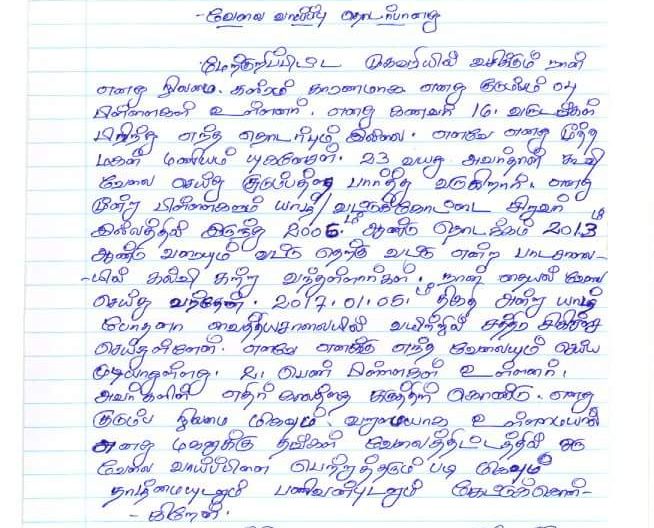 - வேலை வாய்ப்பு தொடர்பானது
மேற்குறிப்பிட்ட முகவரியில் வசிக்கும் நான்
எனது நிலமை. கஸ்ரம் காரணமாக எனது குடும்பம் 04
பிள்ளைகள் உள்ளனர். எனது கணவர் 16. வருடங்கள்
பிரிந்து எந்த தொடர்பும் இல்லை. எனவே எனது மூத்த
மகன் மணியம் 23 வயது அவர்தான் கூலி
வேலை செய்து குடும்பத்தை பார்த்து வருகிறார். எனது
மூன்று பிள்ளைகளும் யாழ்/ வட்டுக்கோட்டை சிறுவர்
இல்லத்தில் இருந்து 2006ம் ஆண்டு தொடக்கம் 2013ம்
ஆண்டு வரையும் வட்டு தெற்கு வட்டு என்ற பாடசாலை-
-யில் கல்வி கற்று வந்துள்ளார்கள். நான் தையல் வேலை
செய்து வந்தேன். 2017.01.05.ம் திகதி அன்று யாழ்
போதனா வைத்தியசாலையில் வயிற்றில் சத்திர சிகிச்சை
செய்துள்ளேன். எனவே எனக்கு எந்த வேலையும் செய்ய
முடியாதுள்ளது. 2. பெண் பிள்ளைகள் உள்ளனர்.
அவர்களின் எதிர் காலத்தை கருத்திற் கொண்டு. எனது
குடும்ப நிலமை மிகவும். வறுமையாக உள்ளமையால்
எனது மகனுக்கு தங்கள் வேலைத்திட்டத்தில் ஒரு
வேலை வாய்ப்பினை பெற்றுத்தரும் படி மிகவும்
தாழ்மையுடனும் பணிவன்புடனும் கேட்டுக்கொள்-
- கிறேன்.